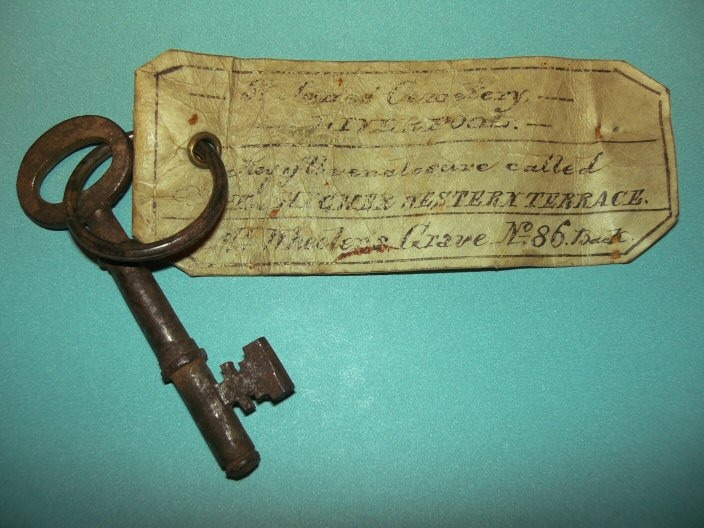 St James Cemetery,
LIVERPOOL.
Key of the enclosure called
THE HIGHER WESTERN TERRACE.
Wheelens Grave No. 86. Back.